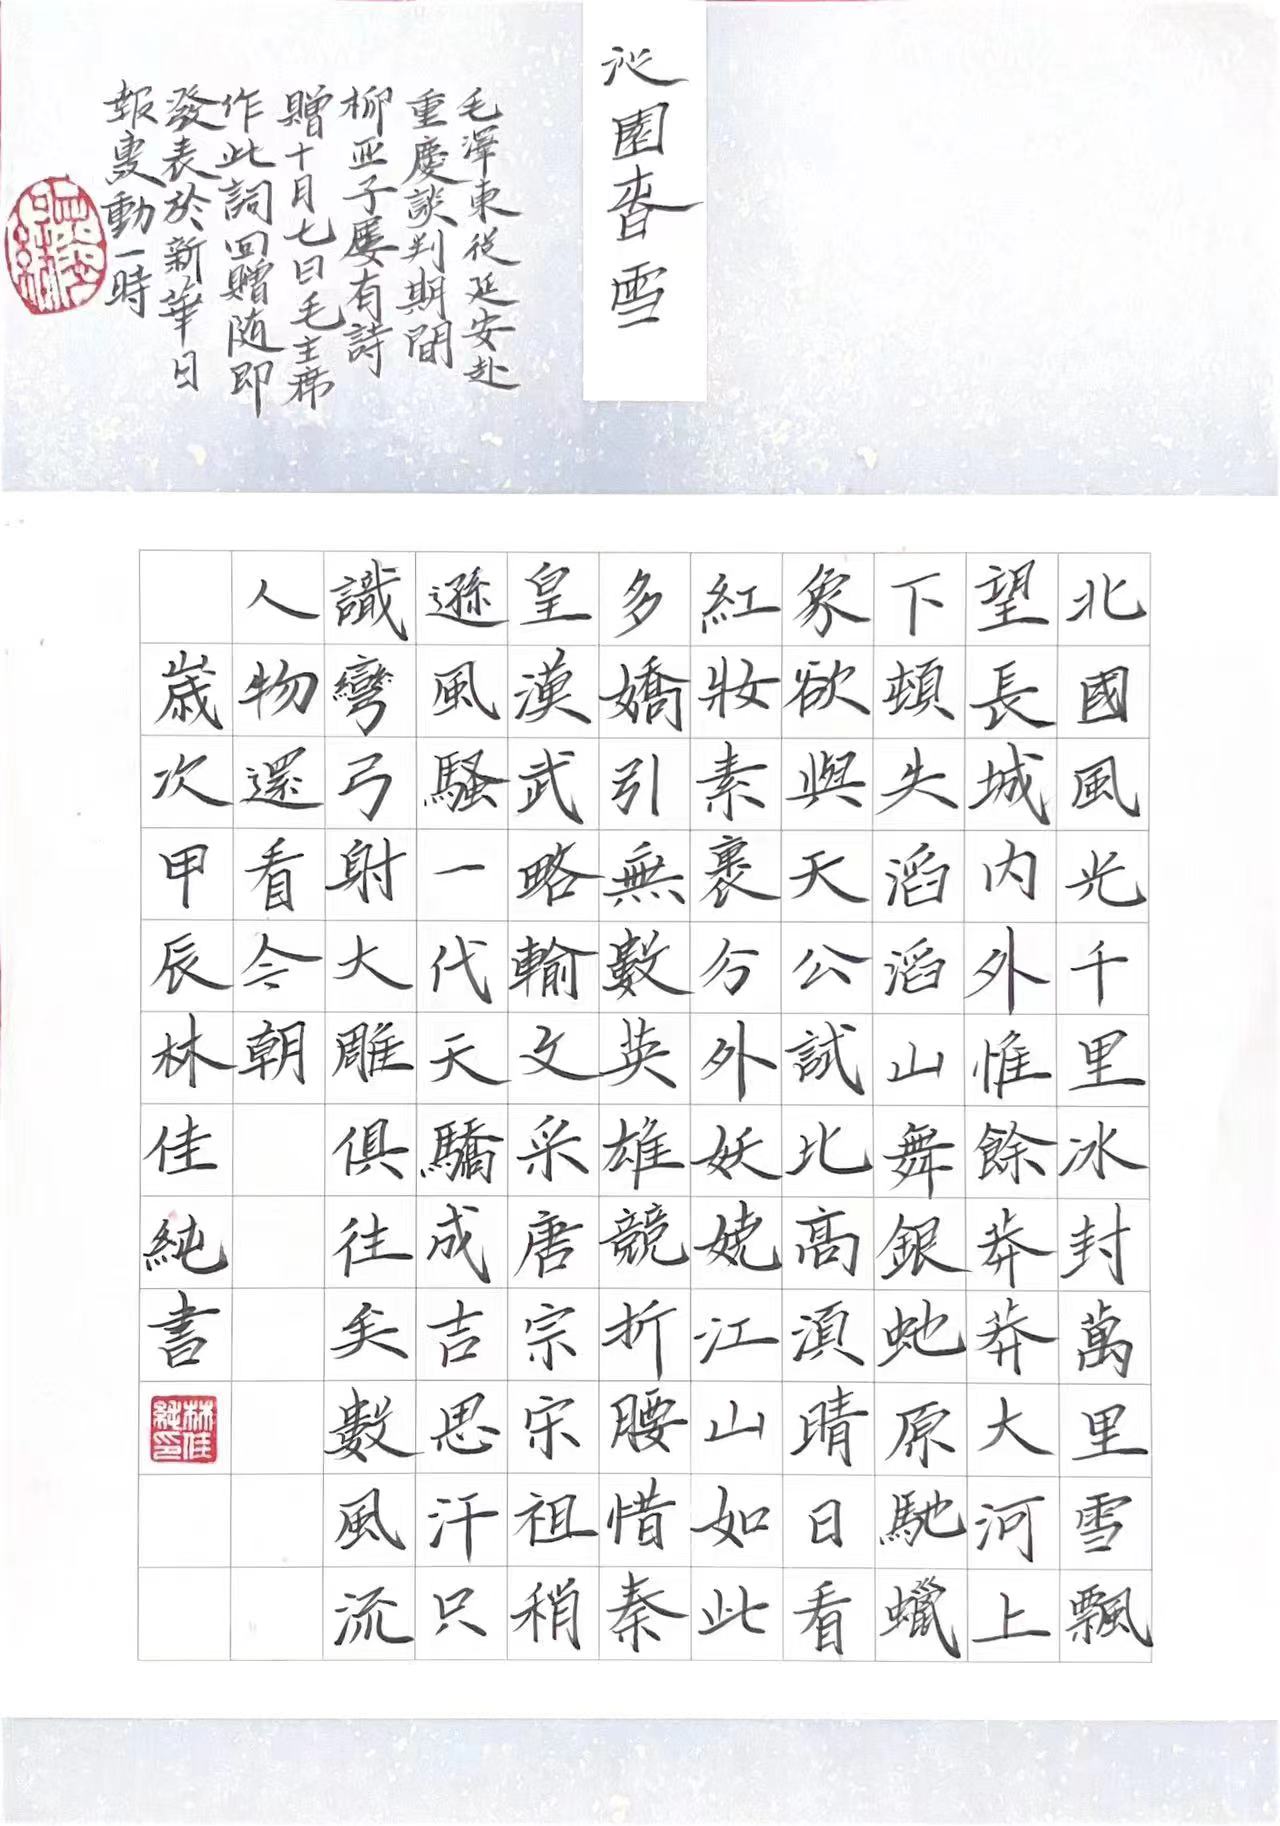 沁園春雪
毛澤東從延安赴
重慶談判期間
柳亞子屢有詩
贈十月七日毛主席
作此詞回贈随即
發表於新華日
報轟動一時
北國風光千里冰封萬里雪飄
望長城内外惟餘莽莽大河上
下頓失滔滔山舞銀蛇原馳蠟
象欲與天公試比高須晴日看
紅妝素裹分外妖嬈江山如此
多嬌引無數英雄競折腰惜秦
皇漢武略輸文采唐宗宋祖稍
遜風騷一代天驕成吉思汗只
識彎弓射大雕俱往矣數風流
人物還看今朝
歲次甲辰林佳純書
林佳純印